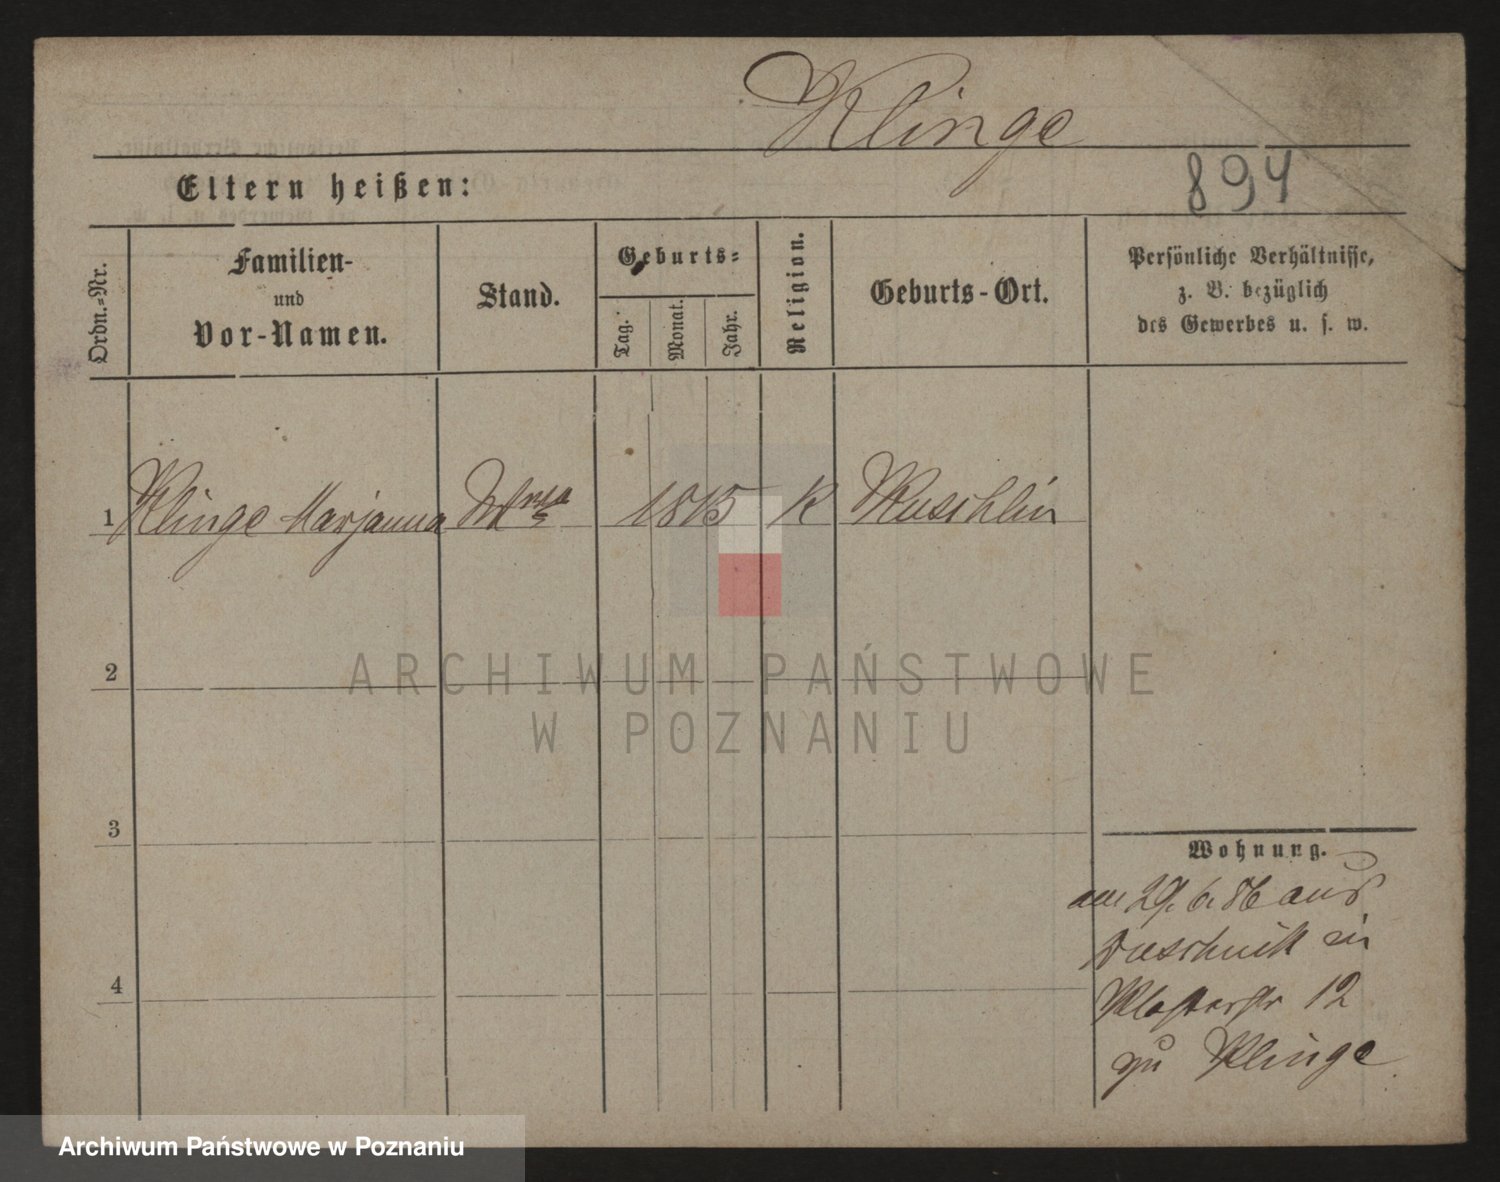 Klinge
894
Eltern heißen:
Ordn.=Nr.
Familien-
und
Vor-Namen.
Stand.
Geburts=
Tag.
Monat.
Jahr.
Religion.
Geburts-Ort.
Persönliche Verhältnisse,
z. B. bezüglich
des Gewerbes u. s. w.
1 Klinge Marjanna 1815 K Kuschlin
2
ARCHIWUM PAŃSTWOWE
W POZNANIU
3
Wohnung.
am 29. 6. 86 aus
in
4
Klosterstr 12
zu Klinge
Archiwum Państwowe w Poznaniu